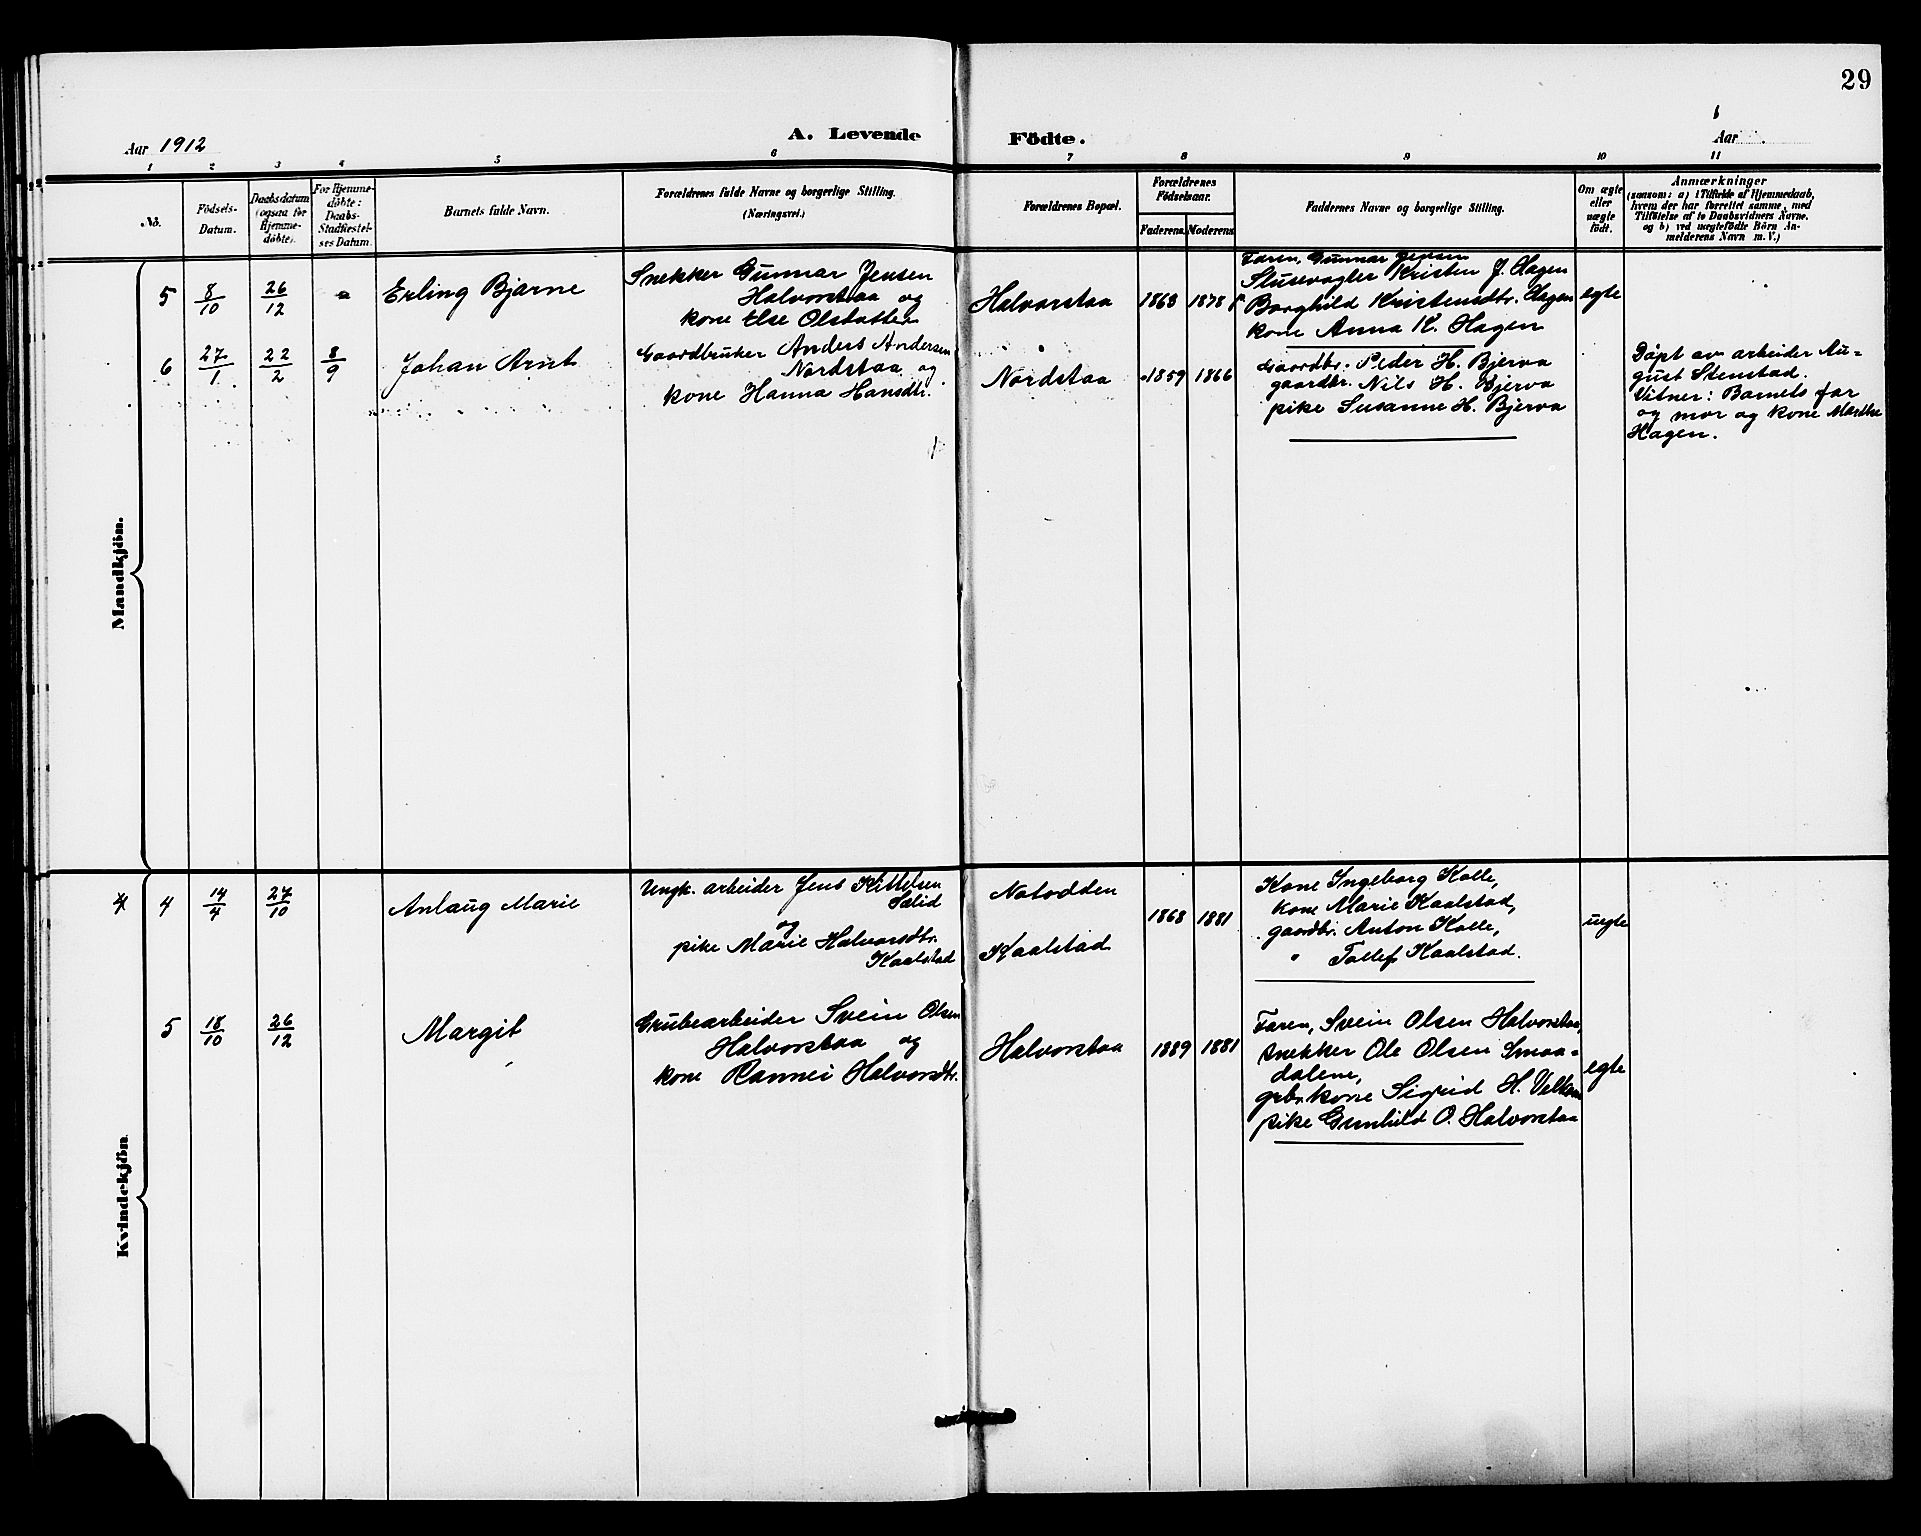 29
A. Levende Födte.
Aar 1912
Aar
1 2 3 4 5 6 7 8 9 10 11
No.
Födsels-
Datum.
Daabsdatum
(ogsaa for
Hjemme-
döbte).
For Hjemme-
döbte:
Daabs-
Stadfæstel-
ses Datum.
Barnets fulde Navn.
Forældrenes fulde Navne og borgerlige Stilling.
(Næringsvei.)
Forældrenes Bopæl.
Forældrenes
Födselsaar.
Faderens. Moderens.
Faddernes Navne og borgerlige Stilling.
Om ægte
eller
uægte
födt.
Anmærkninger
(saasom: a) i Tilfælde af Hjemmedaab,
hvem der har forrettet samme, med
Tilföielse af to Daabsvidners Navne.
og b) ved uægtefödte Börn An-
melderens Navn m. V.)
Mandkjön.
5
8/10
26/12
Erling Bjarne
Snekker Gunnar Jensen
Halvorstaa og
kone Else Olsdatter
Halvorstaa
1868 1878
Faren, Gunnar Jensen
Slusevogter Kristen J. Hagen
Borghild Kristensdtr. Hagen
kone Anna K. Hagen
egte
6
27/1
22/2
8/9
Johan Arnt
Gaardbruker Anders Andersen
Nordstaa og
kone Hanna Hansdtr.
Nordstaa
1859 1866
Gaardbr. Peder H. Bjerva
gaardbr. Nils H. Bjerva
pike Susanne H. Bjerva
Döpt av arbeider Au-
gust Stenstad.
Vitner: Barnets far
og mor og kone Marthe
Hagen.
Kvindekjön.
4
14/4
27/10
Anlaug Marie
Ungk. arbeider Jens Kittelsen
Sælid
og
pike Marie Halvorsdtr.
Kaalstad
Notodden
Kaalstad
1868 1881
Kone Ingeborg Kolle,
kone Marie Kaalstad,
gaardbr. Anton Kolle,
" Tollef Kaalstad.
uegte
5
18/10
26/12
Margit
Grubearbeider Svein Olsen
Halvorstaa og
kone Rannei Halvorsdtr.
Halvorstaa
1889 1881
Faren, Svein Olsen Halvorstaa,
snekker Ole Olsen Smaa-
dalene,
grbr.kone Sigrid H.
pike Gunhild O. Halvorstaa
egte